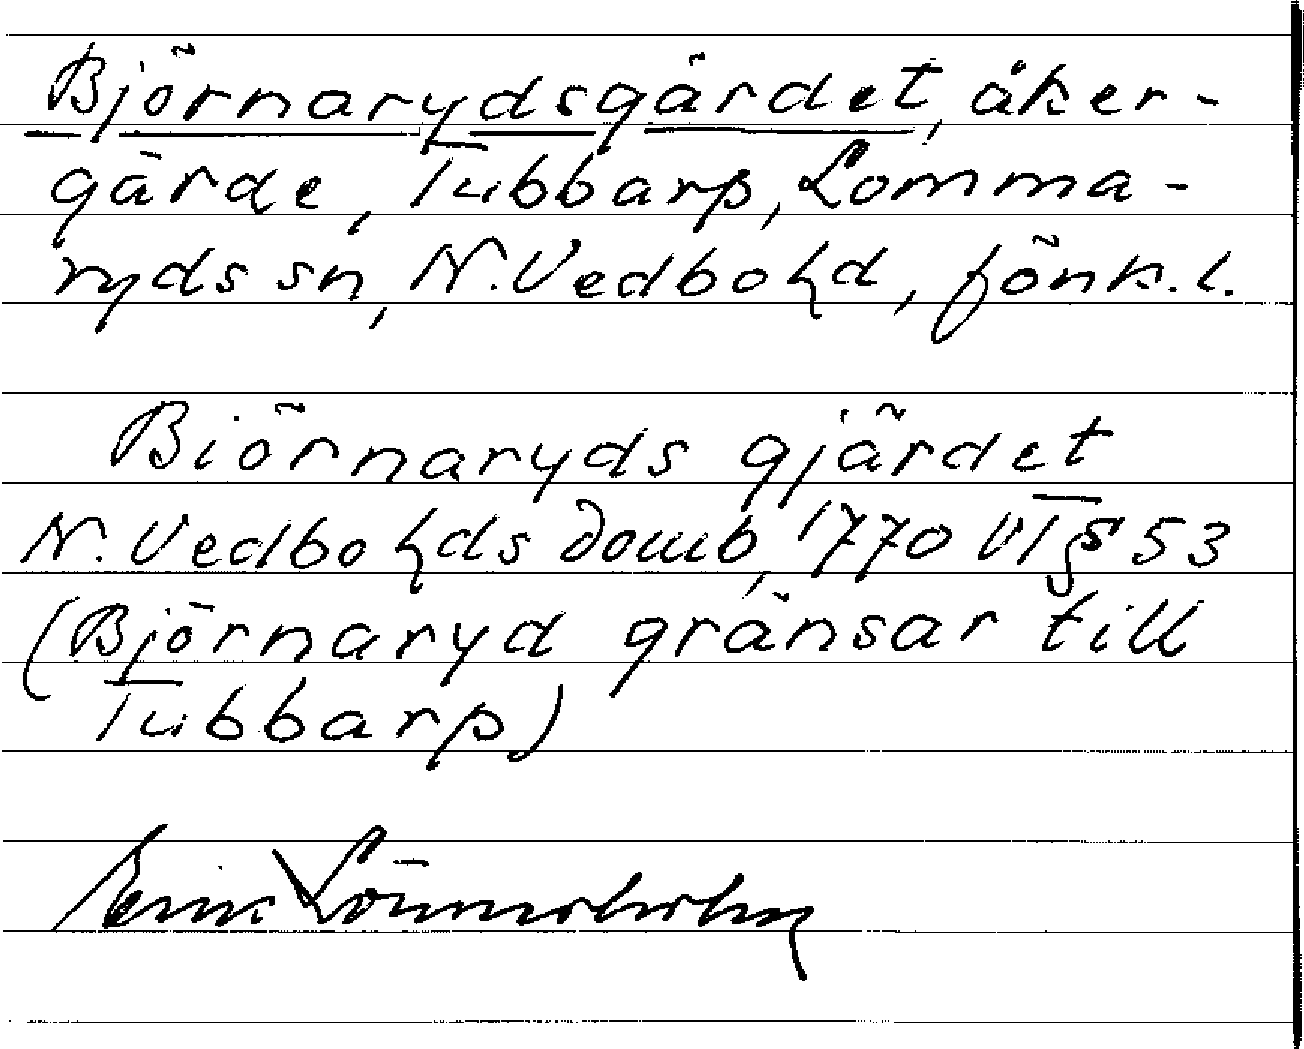 Björnarydsgärdet, åker-
gärde, Tubbarp, Lomma-
ryds sn, N. Vedbo hd, Jönk. l.
Biörnaryds gjärdet
N. Vedbo hds domb, 1770 VI § 53
(Björnaryd gränsar till
Tubbarp)